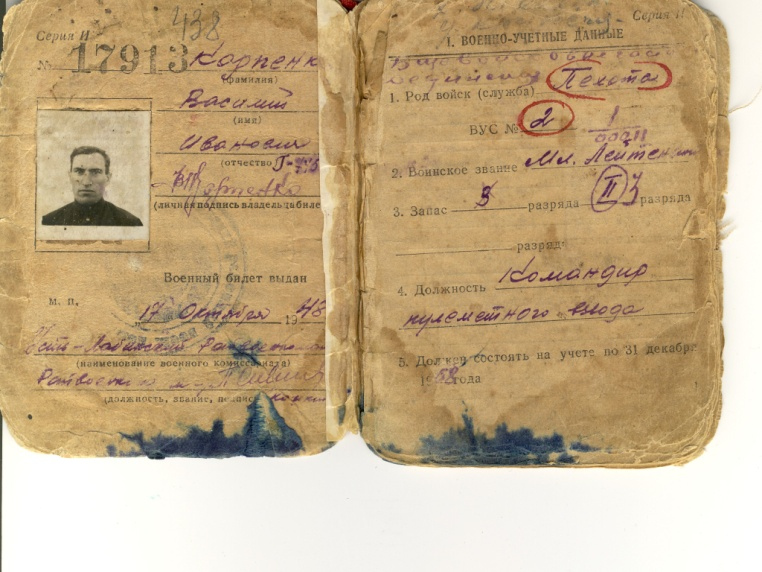 438
Серия И
№ 17913 Карпенк
(фамилия)
Василий
(имя)
Иванович
(отчество)
(личная подпись владельца билет
Военный билет выдан
М. П.
17 Октября 1948
Усть-Лабинский
(наименование военного комиссариата)
(должность, звание, подпис
Серия И
I. ВОЕННО-УЧЕТНЫЕ ДАННЫЕ
1. Род войск (служба) Пехота
ВУС № 2 1
2. Воинское звание Мл. Лейтенант
3. Запас 3 разряда II разряда
разряда
4. Должность Командир
пулеметного взвода
5. Должен состоять на учете по 31 декабря
1958 года